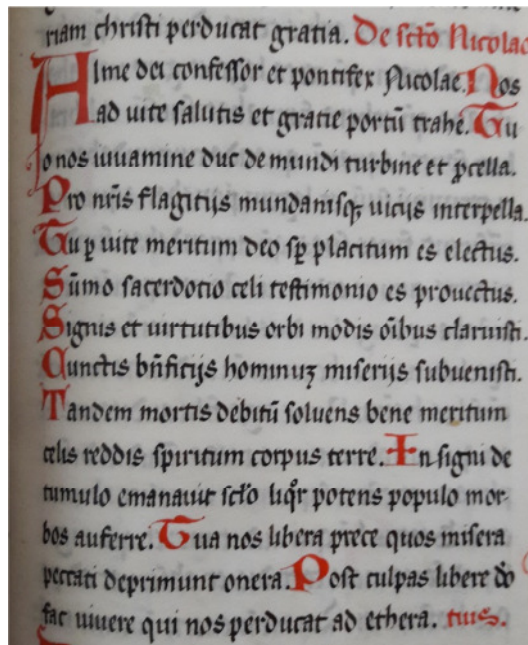 riam christi perducat gratia. De sctō Nicolao
Alme dei confessor et pontifex Nicolae. Nos
ad uite salutis et gratie portū trahe. Tu
o nos iuuamine duc de mundi turbine et ꝓcella.
Pro nr̄is flagitijs mundanisqꝫ uicijs interpella.
Tu ꝑ uite meritum deo sꝑ placitum es electus.
Sūmo sacerdotio celi testimonio es prouectus.
Signis et uirtutibus orbi modis oībus claruisti.
Cunctis bn̄ficijs hominuꝫ miserijs subuenisti.
Tandem mortis debitū soluens bene meritum
celis reddis spiritum corpus terre. In signi de
tumulo emanauit sctō liqr̄ potens populo mor-
bos auferre. Tua nos libera prece quos misera
peccati deprimunt onera. Post culpas libere dō
fac uiuere qui nos perducat ad ethera.